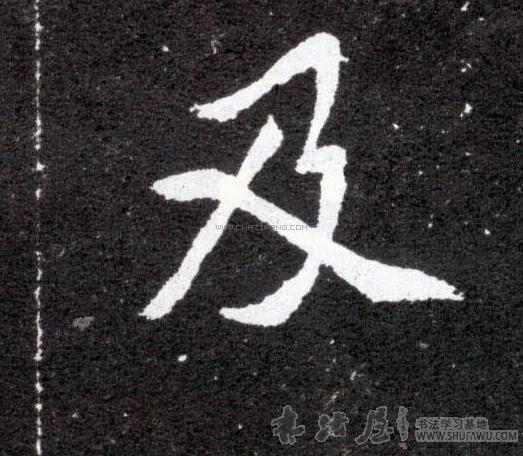 及
WWW.CHAZIWANG.COM
书法学习基地
WWW.SHUFAWU.COM